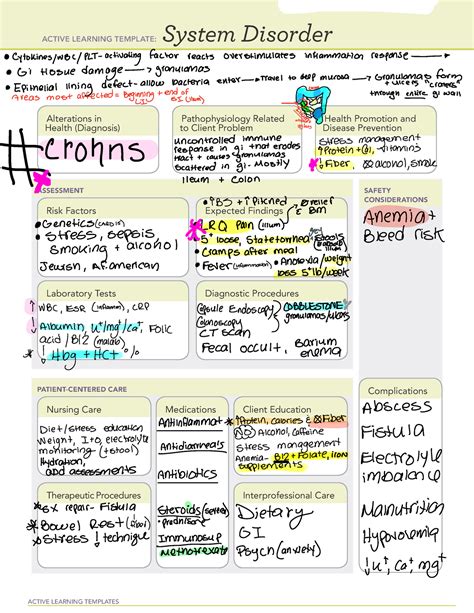 ACTIVE LEARNING TEMPLATE: System Disorder
• Cytokines/WBC/PLT-activating factor reacts overstimulates inflammation response
• GI tissue damage → granulomas
• Epithelial lining defect-allow bacteria enter → travel to deep mucosa → Granulomas form
through entire gi wall
Areas most affected = Beginning + end of
GI (Ilium)
Alterations in
Health (Diagnosis)
# Crohns
Pathophysiology Related
to Client Problem
uncontrolled immune
response in gi that erodes
tract + causes granulomas
scattered in gi. Mostly
Ileum + Colon
Health Promotion and
Disease Prevention
Stress management
↑ Protein + cal, vitamins
↓ Fiber, alcohol, smoke
ASSESSMENT
SAFETY
CONSIDERATIONS
Anemia +
Bleed risk
Risk Factors
• Genetics
• Stress, sepsis
smoking + alcohol
Jewish, Af. american
Expected Findings
LRQ Pain (Ilium)
5 loose,
• Cramps after meal
• Fever (inflammation) • Anorexia/weight
loss 5 lb/week
Laboratory Tests
↑ WBC, ESR (inflamm), CRP
↓ Albumin, K⁺/mg⁺/Ca⁺, Folic
acid / B12 (malab)
↓ Hbg + HCT %
Diagnostic Procedures
Capsule Endoscopy
Colonoscopy
COBBLESTONE
granulomas/ulcers
CT scan
Fecal occult, Barium
enema
PATIENT-CENTERED CARE
Complications
Abscess
Fistula
Electrolyte
imbalance
Malnutrition
Hypovolemia
↓ K, Ca⁺, mg⁺
Nursing Care
Diet/stress education
Weight, I+O, electrolyte
monitoring (+stool)
Hydration,
abd assessments
Medications
Antiinflammat
Antidiarrheals
Antibiotics
Steroids
prednisone
Immunosup
methotrexate
Client Education
↑ Protein, calories & Fiber
Alcohol, caffeine
Stress management
Anemia- B12 + Folate, iron
supplements
Therapeutic Procedures
* Sx repair- Fistula
* Bowel Rest
* Stress ↓ technique
Interprofessional Care
Dietary
GI
Psych (anxiety)
ACTIVE LEARNING TEMPLATES